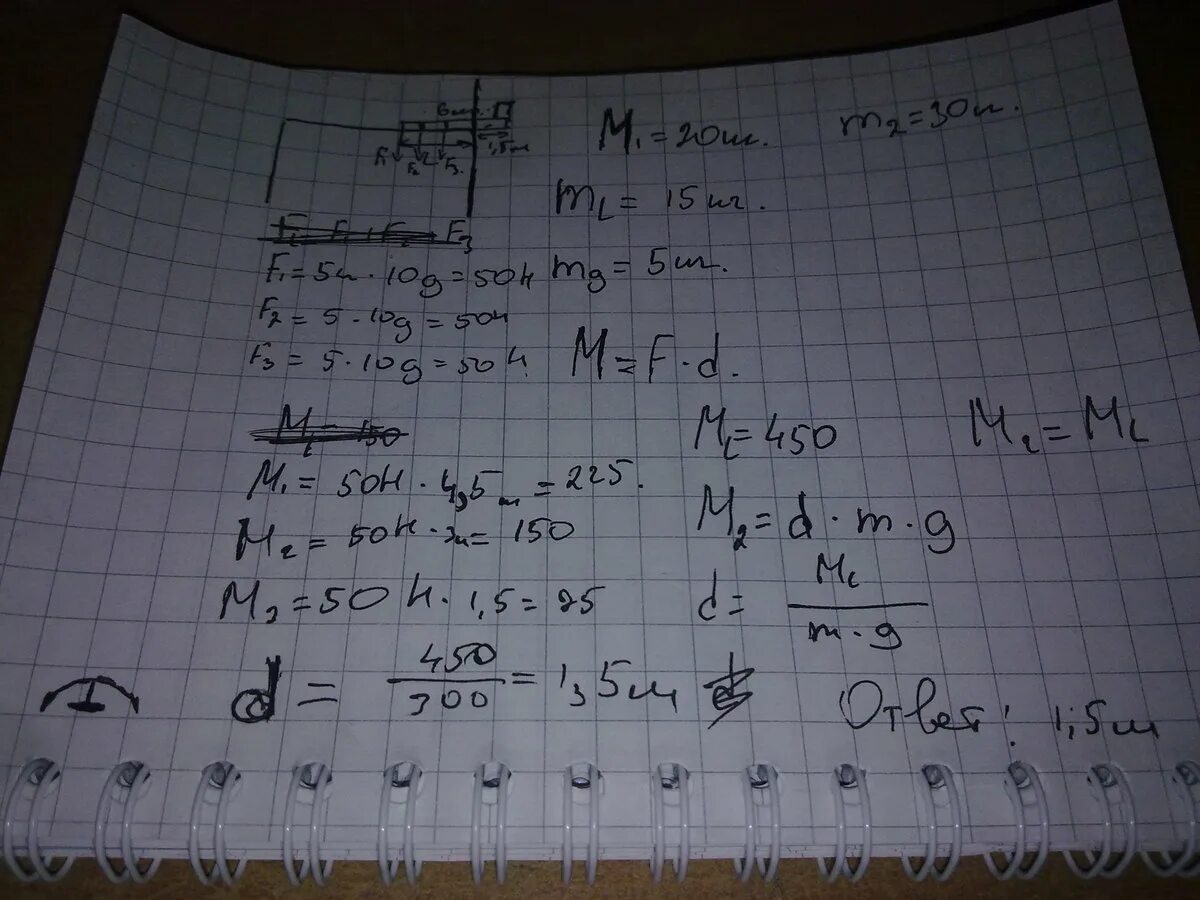 6 1,5м
F₁ F₂ F₃
M₁ = 20 кг.
m₂ = 30 кг.
m_L = 15 кг.
F₃
F₁ = 5 · 10g = 50Н
mg = 5 кг.
F₂ = 5 · 10g = 50Н
F₃ = 5 · 10g = 50Н
M = F · d.
M = 150
M_L = 450
M₂ = M_L
M₁ = 50Н · 4,5м = 225.
M₂ = 50Н · 3м = 150
M₂ = d · m · g
M₃ = 50Н · 1,5 = 25
d = M_L / m · g
d = 450 / 300 = 1,5м
Ответ: 1,5м